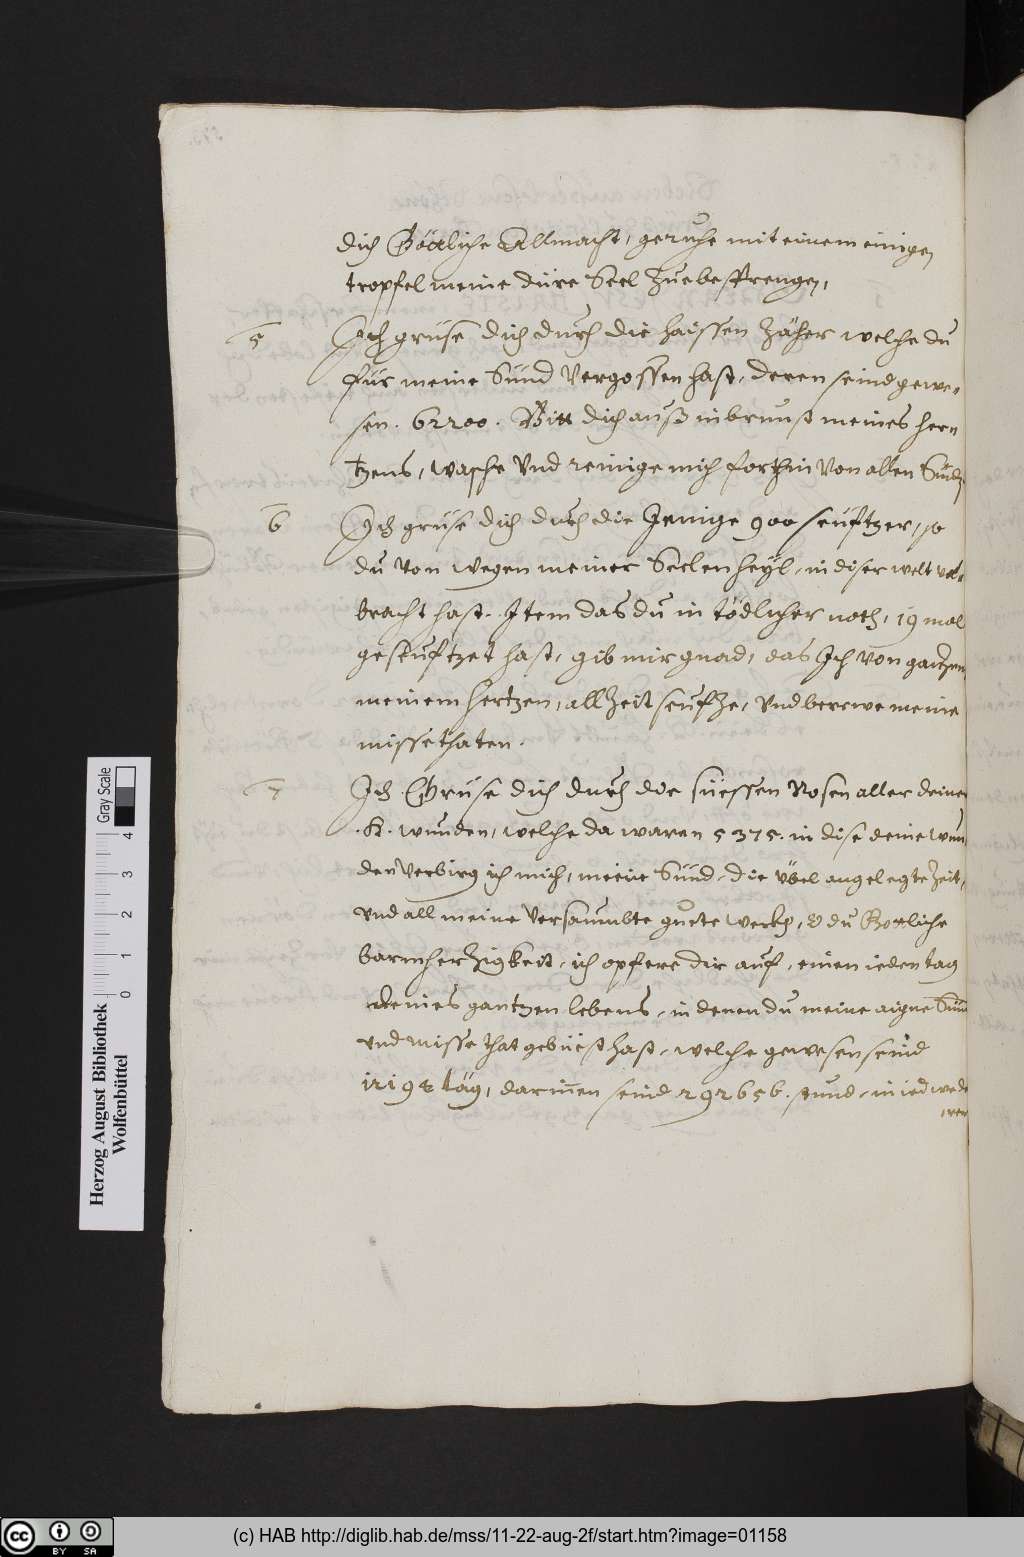 dich Göttliche Allmacht, geruche mit einem einigen
tropfel meine dürre Seel zuebesprengen,
5 Ich grüse dich durch die haissen Zäher welche du
für meine Sünd vergossen hast, deren seind gewe-
sen. 62200. Bitt dich auß inbrunst meines hern
tzens, wasche vnd reinige mich forthin von allen Sünd
6 Ich grüse dich durch die Jenige 900 seufftzer, so
du von wegen meiner Seelen heyl, in diser welt vol
bracht hast. Item das du in tödlicher noth, 19 mal
geseufftzet hast, gib mir gnad, das Ich von gantzem
meinem hertzen, all Zeit seufze, vnd berewe meine
missethaten.
7 Ich Grüse dich durch die süessen Rosen aller deiner
.H. wunden, welche da waren 5375. in dise deine wun
den verbirg ich mich, meine Sünd, die übel angelegte Zeit,
vnd all meine versaumbte guete werckh, O du Göttliche
barmherzigkeit, ich opfere dir auf, einen ieden tag
deines gantzen lebens, in denen du meine aigne Sün
vnd missethat gebüest hast, welche gewesen seind
12194 täg, darinnen seind 292656. stund, in iedwede
rer
Herzog August Bibliothek
Wolfenbüttel
0 1 2 3 4
Gray Scale
cc BY SA
(c) HAB http://diglib.hab.de/mss/11-22-aug-2f/start.htm?image=01158